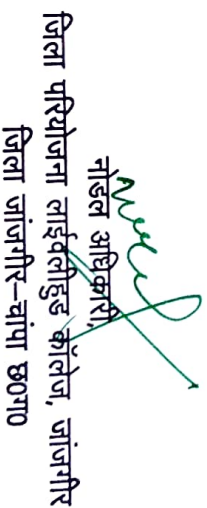 नोडल अधिकारी,
जिला परियोजना लाईवलीहुड कॉलेज, जांजगीर
जिला जांजगीर–चांपा छ0ग0